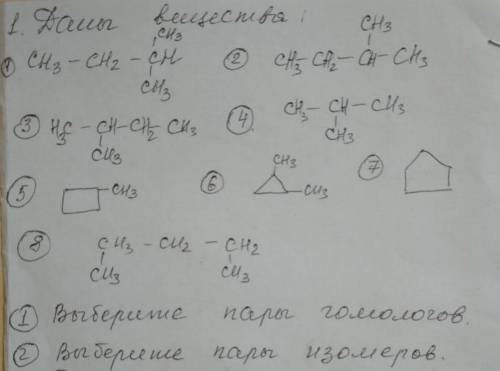 1. Даны вещества:
① CH₃ – CH₂ – CH
CH₃
CH₃
② CH₃ – CH₂ – CH – CH₃
CH₃
③ H₃C – CH – CH₂ – CH₃
CH₃
④ CH₃ – CH – CH₃
CH₃
⑤ CH₃
⑥ CH₃
CH₃
⑦
⑧ CH₃ – CH₂ – CH₂
CH₃ CH₃
① Выберите пары гомологов.
② Выберите пары изомеров.